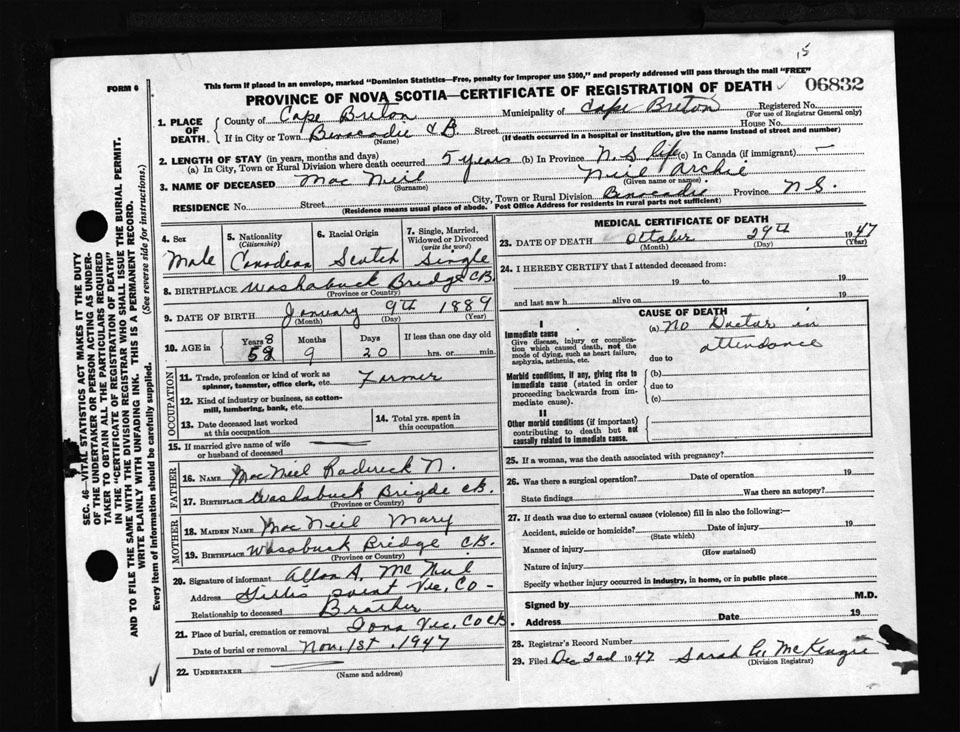 15
FORM 6
This form if placed in an envelope, marked "Dominion Statistics—Free, penalty for improper use $300," and properly addressed will pass through the mail "FREE"
PROVINCE OF NOVA SCOTIA—CERTIFICATE OF REGISTRATION OF DEATH ✓ 06832
1. PLACE OF DEATH. County of Cape Breton Municipality of Cape Breton Registered No.
(For use of Registrar General only)
If in City or Town Benacadie C.B. Street House No.
(Name) (If death occurred in a hospital or institution, give the name instead of street and number)
2. LENGTH OF STAY (in years, months and days)
(a) In City, Town or Rural Division where death occurred 5 years (b) In Province N.S life (c) In Canada (if immigrant) —
3. NAME OF DECEASED Mac Neil Neil Archie
(Surname) (Given name or names)
RESIDENCE No. Street City, Town or Rural Division Benacadie Province N S.
(Residence means usual place of abode. Post Office Address for residents in rural parts not sufficient)
4. Sex 5. Nationality (Citizenship) 6. Racial Origin 7. Single, Married, Widowed or Divorced (write the word)
Male Canadian Scotch Single
8. BIRTHPLACE Washabuck Bridge CB.
(Province or Country)
9. DATE OF BIRTH January 9th 1889
(Month) (Day) (Year)
10. AGE in Years Months Days If less than one day old
58 9 20 hrs. or min.
OCCUPATION
11. Trade, profession or kind of work as spinner, teamster, office clerk, etc. Farmer
12. Kind of industry or business, as cotton-mill, lumbering, bank, etc.
13. Date deceased last worked at this occupation
14. Total yrs. spent in this occupation
15. If married give name of wife or husband of deceased
FATHER
16. NAME MacNeil Roderick N.
17. BIRTHPLACE Washabuck Brigde CB.
(Province or Country)
MOTHER
18. MAIDEN NAME MacNeil Mary
19. BIRTHPLACE Wasabuck Bridge CB.
(Province or Country)
20. Signature of informant Allan A. McNeil
Address Gillis point Vic, Co -
Relationship to deceased Brother
21. Place of burial, cremation or removal Iona Vic, Co CB.
Date of burial or removal Nov. 1st. 1947
22. UNDERTAKER
(Name and address)
MEDICAL CERTIFICATE OF DEATH
23. DATE OF DEATH October 29th 1947
(Month) (Day) (Year)
24. I HEREBY CERTIFY that I attended deceased from:
19 to 19
and last saw h alive on 19
CAUSE OF DEATH
I
Immediate cause (a) No Doctor in attendance
Give disease, injury or complication which caused death, not the mode of dying, such as heart failure, asphyxia, asthenia, etc.
due to
Morbid conditions, if any, giving rise to immediate cause (stated in order proceeding backwards from immediate cause).
(b)
due to
(c)
II
Other morbid conditions (if important) contributing to death but not causally related to immediate cause.
25. If a woman, was the death associated with pregnancy?
26. Was there a surgical operation? Date of operation 19
State findings Was there an autopsy?
27. If death was due to external causes (violence) fill in also the following:—
Accident, suicide or homicide? Date of injury 19
(State which)
Manner of injury
(How sustained)
Nature of injury
Specify whether injury occurred in industry, in home, or in public place
Signed by M.D.
Address Date 19
28. Registrar's Record Number
29. Filed Dec 2nd 1947 Sarah McKenzie
(Division Registrar)
SEC. 46—VITAL STATISTICS ACT MAKES IT THE DUTY
OF THE UNDERTAKER OR PERSON ACTING AS UNDER-
TAKER TO OBTAIN ALL THE PARTICULARS REQUIRED
IN THE "CERTIFICATE OF REGISTRATION OF DEATH"
AND TO FILE THE SAME WITH THE DIVISION REGISTRAR WHO SHALL ISSUE THE BURIAL PERMIT.
WRITE PLAINLY WITH UNFADING INK. THIS IS A PERMANENT RECORD.
Every item of information should be carefully supplied. (See reverse side for instructions.)